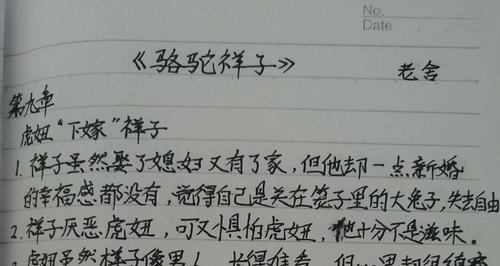 No.
Date
《骆驼祥子》
老舍
第九章
虎妞“下嫁”祥子
1. 祥子虽然娶了媳妇又有了家，但他却一点新婚
的幸福感都没有，觉得自己是关在笼子里的大兔子，失去自由
2. 祥子厌恶虎妞，可又惧怕虎妞，他十分不是滋味。
虎妞虽然样子像男人，长得难看，但